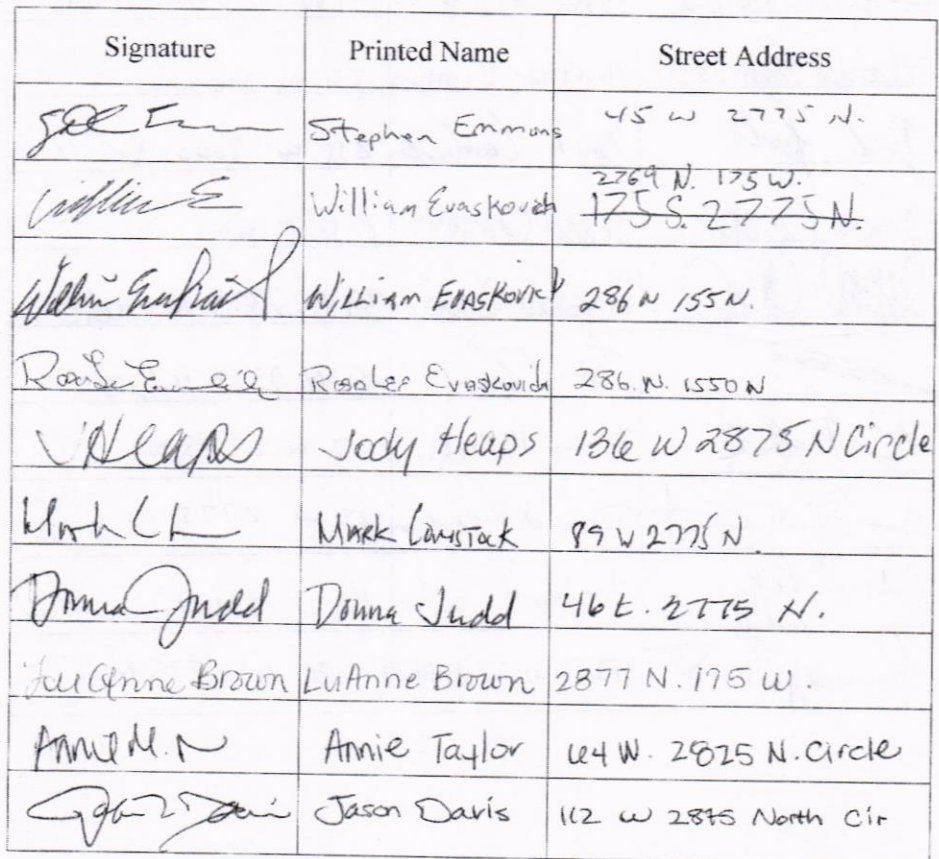 Signature Printed Name Street Address
Stephen Emmons 45 W 2775 N.
2769 N. 175 W.
William Evaskovich 175 S. 2775 N.
William Evaskovich 286 N 155 N.
RosaLee Evaskovich 286. N. 1550 N
JHeaps Jody Heaps 136 W 2875 N Circle
Mark Comstock 89 W 2775 N.
Donna Judd Donna Judd 46 E. 2775 N.
LuAnne Brown LuAnne Brown 2877 N. 175 W.
Annie M. Annie Taylor 64 W. 2825 N. Circle
Jason Davis 112 W 2875 North Cir